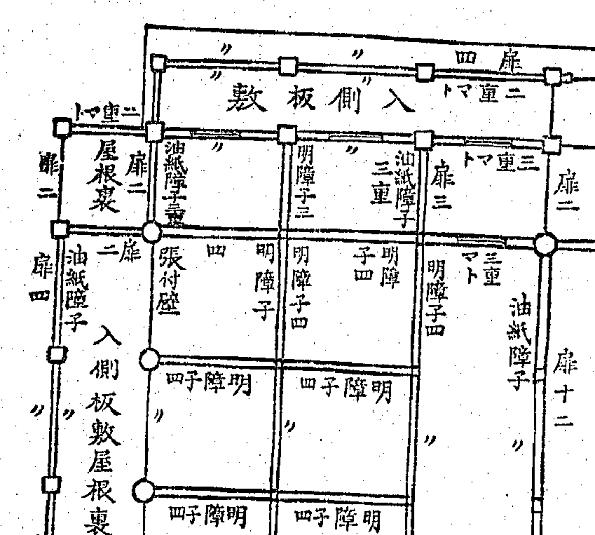 〃
〃
扉四
〃
〃
二重マト
入側板敷
二重マト
扉二
屋根裏
扉二
油紙障子三重
〃
明障子三
〃
油紙障子
三重
扉三
三重マト
扉二
扉二
扉四
油紙障子
張付壁
四
明障子
明障子四
明障
子四
明障子四
三重
マト
油紙障子
扉十二
入側板敷屋根裏
明障子四
明障子四
〃
〃
〃
〃
〃
〃
明障子四
明障子四